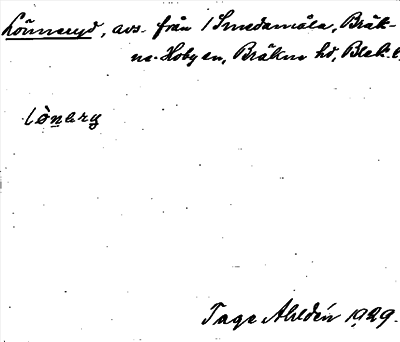 Lönneryd, avs. från 1 Smedamåla, Bräk-
ne-Hoby sn, Bräkne hd, Blek. l.
Tage Ahldén 1929.